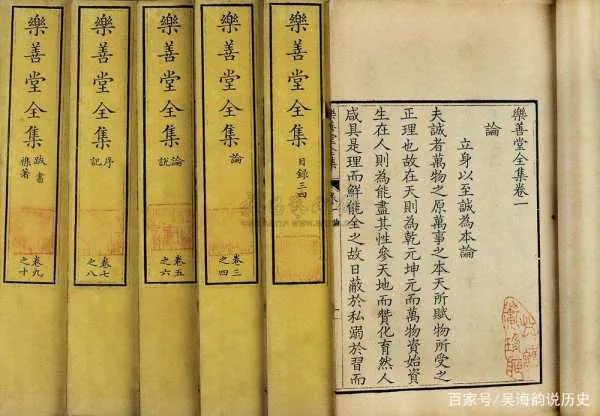 樂善堂全集卷一
論
立身以至誠為本論
夫誠者萬物之原萬事之本天所賦物所受之
正理也故在天則為乾元坤元而萬物資始資
生在人則為能盡其性參天地而贊化育然人
咸具是理而鮮能全之故日蔽於私溺於習而
樂善堂全集
樂善堂全集
目錄三四
樂善堂全集
論
卷三
之四
樂善堂全集
論
說
卷五
之六
樂善堂全集
序
記
卷七
之八
樂善堂全集
跋書
襍著
卷九
之十
百家号/吴海韵说历史